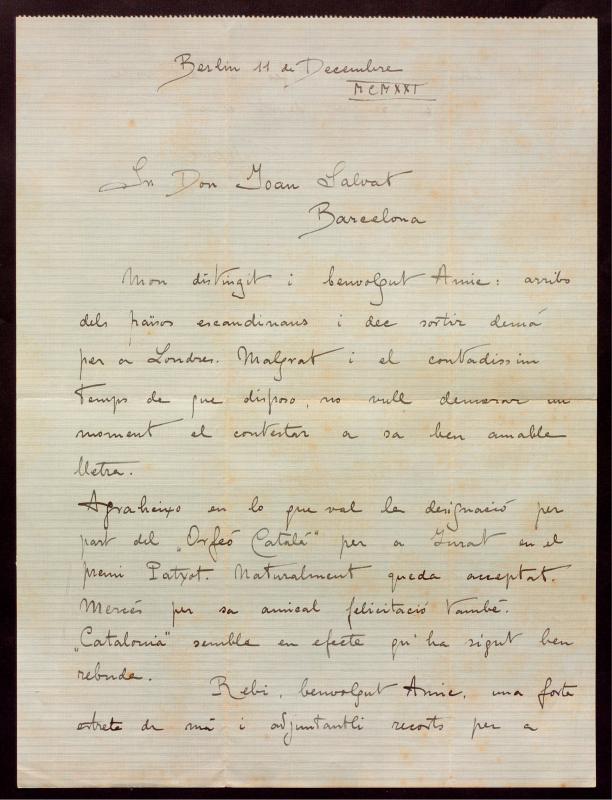 Berlin 11 de Decembre
MCMXXI
Sr Don Joan Salvat
Barcelona
Mon distingit i benvolgut Amic: arribo
dels països escandinaus i dec sortir demá
per a Londres. Malgrat i el contadissim
temps de que disposo, no vull demorar un
moment el contestar a sa ben amable
lletra.
Agraheixo en lo que val la designació per
part del „Orfeó Catalá" per a Jurat en el
premi Patxot. Naturalment queda acceptat.
Mercés per sa amical felicitació també.
„Catalonia" sembla en efecte qu'ha sigut ben
rebuda.
Rebi, benvolgut Amic, una forta
estreta de má i adjuntantli recorts per a